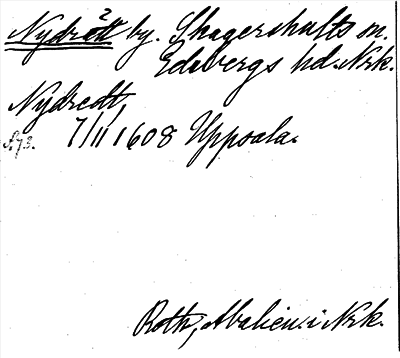 Nydrött by. Skagershults sn.
Edsbergs hd. Nrk.
Nydredt,
7/11 1608 Uppsala.
Roth, i Nrk.